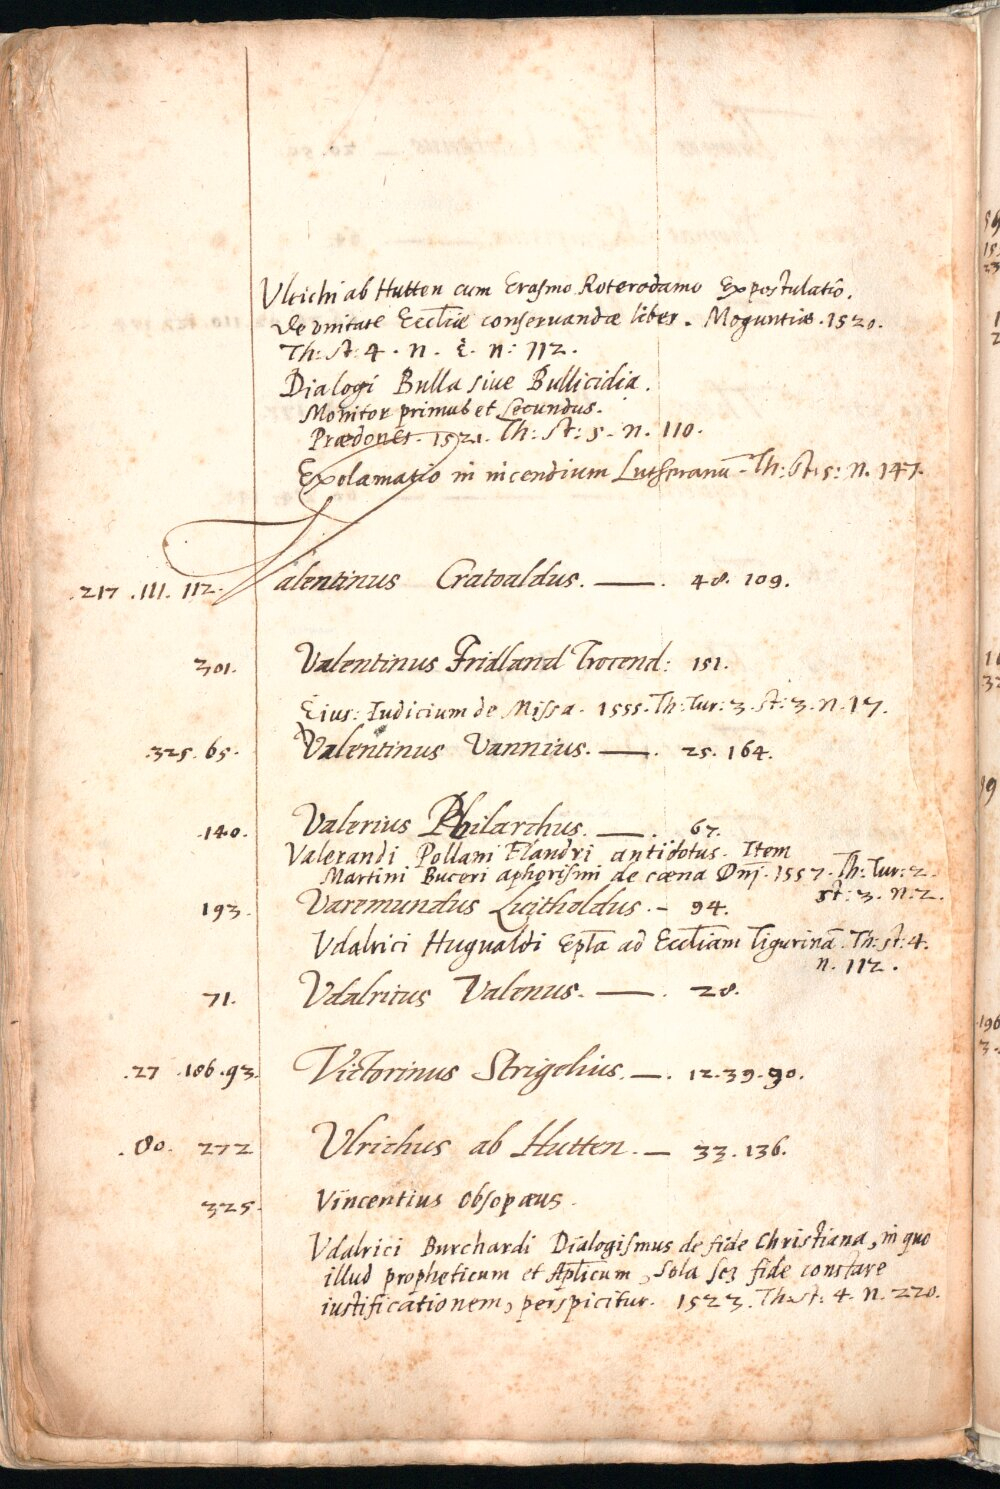 Ulrichi ab Hutten cum Erasmo Roterodamo Expostulatio.
De vnitate Eccłiæ conseruandæ liber. Moguntiæ. 1520.
Th: st: 4. n. E. n: 112.
Dialogi Bulla siue Bullicidia.
Monitor primus et secundus.
Prædones. 1521. Th: st: 5. n. 110.
Exclamatio in incendium Lutheranū - Th: st: 5: n. 147.
.217 .111. 112. Valentinus Cratoaldus. —. 48. 109.
301. Valentinus Fridland Trocend: 151.
Eius: Iudicium de Missa. 1555. Th: Tur: 3. st: 3. n. 17.
.325. 65. Valentinus Vannius. —. 25. 164.
.140. Valerius Philarchus. —. 67.
Valerandi Pollani Flandri antidotus. Item
Martini Buceri aphorismi de cœna Dnj. 1557. Th: Tur: 2.
st: 3. n: 2.
193. Varemundus Luitholdus. - 94.
Vdalrici Hugualdi Epła ad Eccłiam Tigurinā. Th: st: 4.
n. 112.
71. Vdalricus Valenus. —. 28.
.27 .186 .93. Victorinus Strigelius. —. 12. 39. 90.
.80. 272 Ulrichus ab Hutten. — 33. 136.
325. Vincentius Obsopæus.
Vdalrici Burchardi Dialogismus de fide Christiana, in quo
illud propheticum et Aplicum, sola scz fide constare
iustificationem, perspicitur. 1523. Th: st: 4. n. 220.